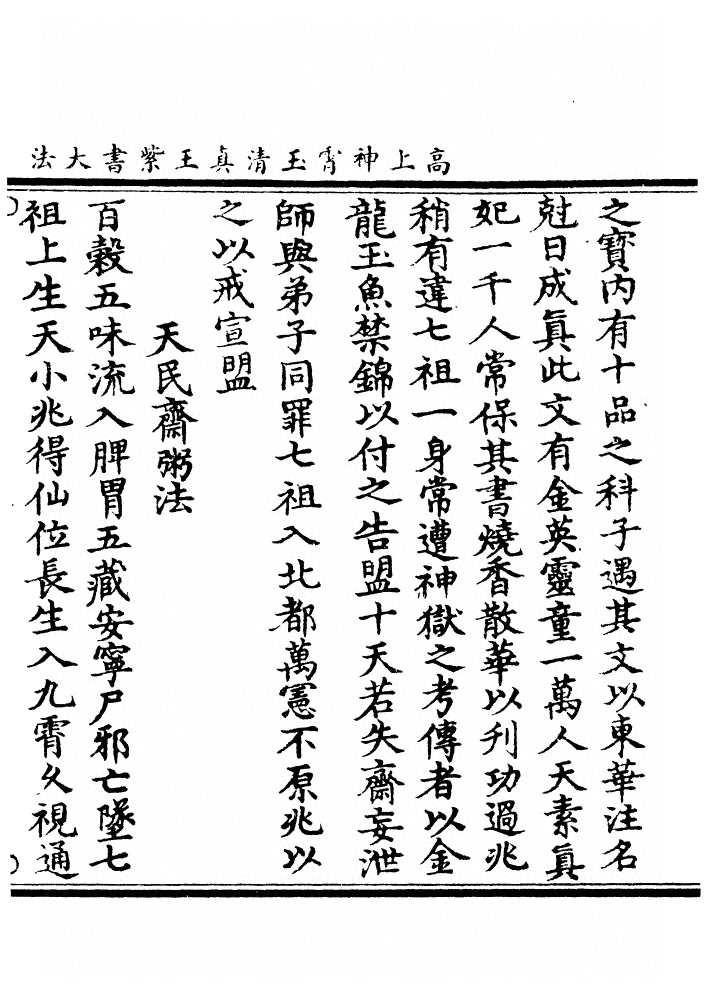 高上神霄玉清真王紫書大法
之寶内有十品之科子遇其文以東華注名
尅日成真此文有金英靈童一萬人天素真
妃一千人常保其書燒香散華以刋功過兆
稍有違七祖一身常遭神獄之考傳者以金
龍玉魚禁錦以付之告盟十天若失齋妄泄
師與弟子同罪七祖入北都萬憲不原兆以
之以戒宣盟
天民齋粥法
百穀五味流入脾胃五藏安寧尸邪亡墜七
祖上生天小兆得仙位長生入九霄久視通